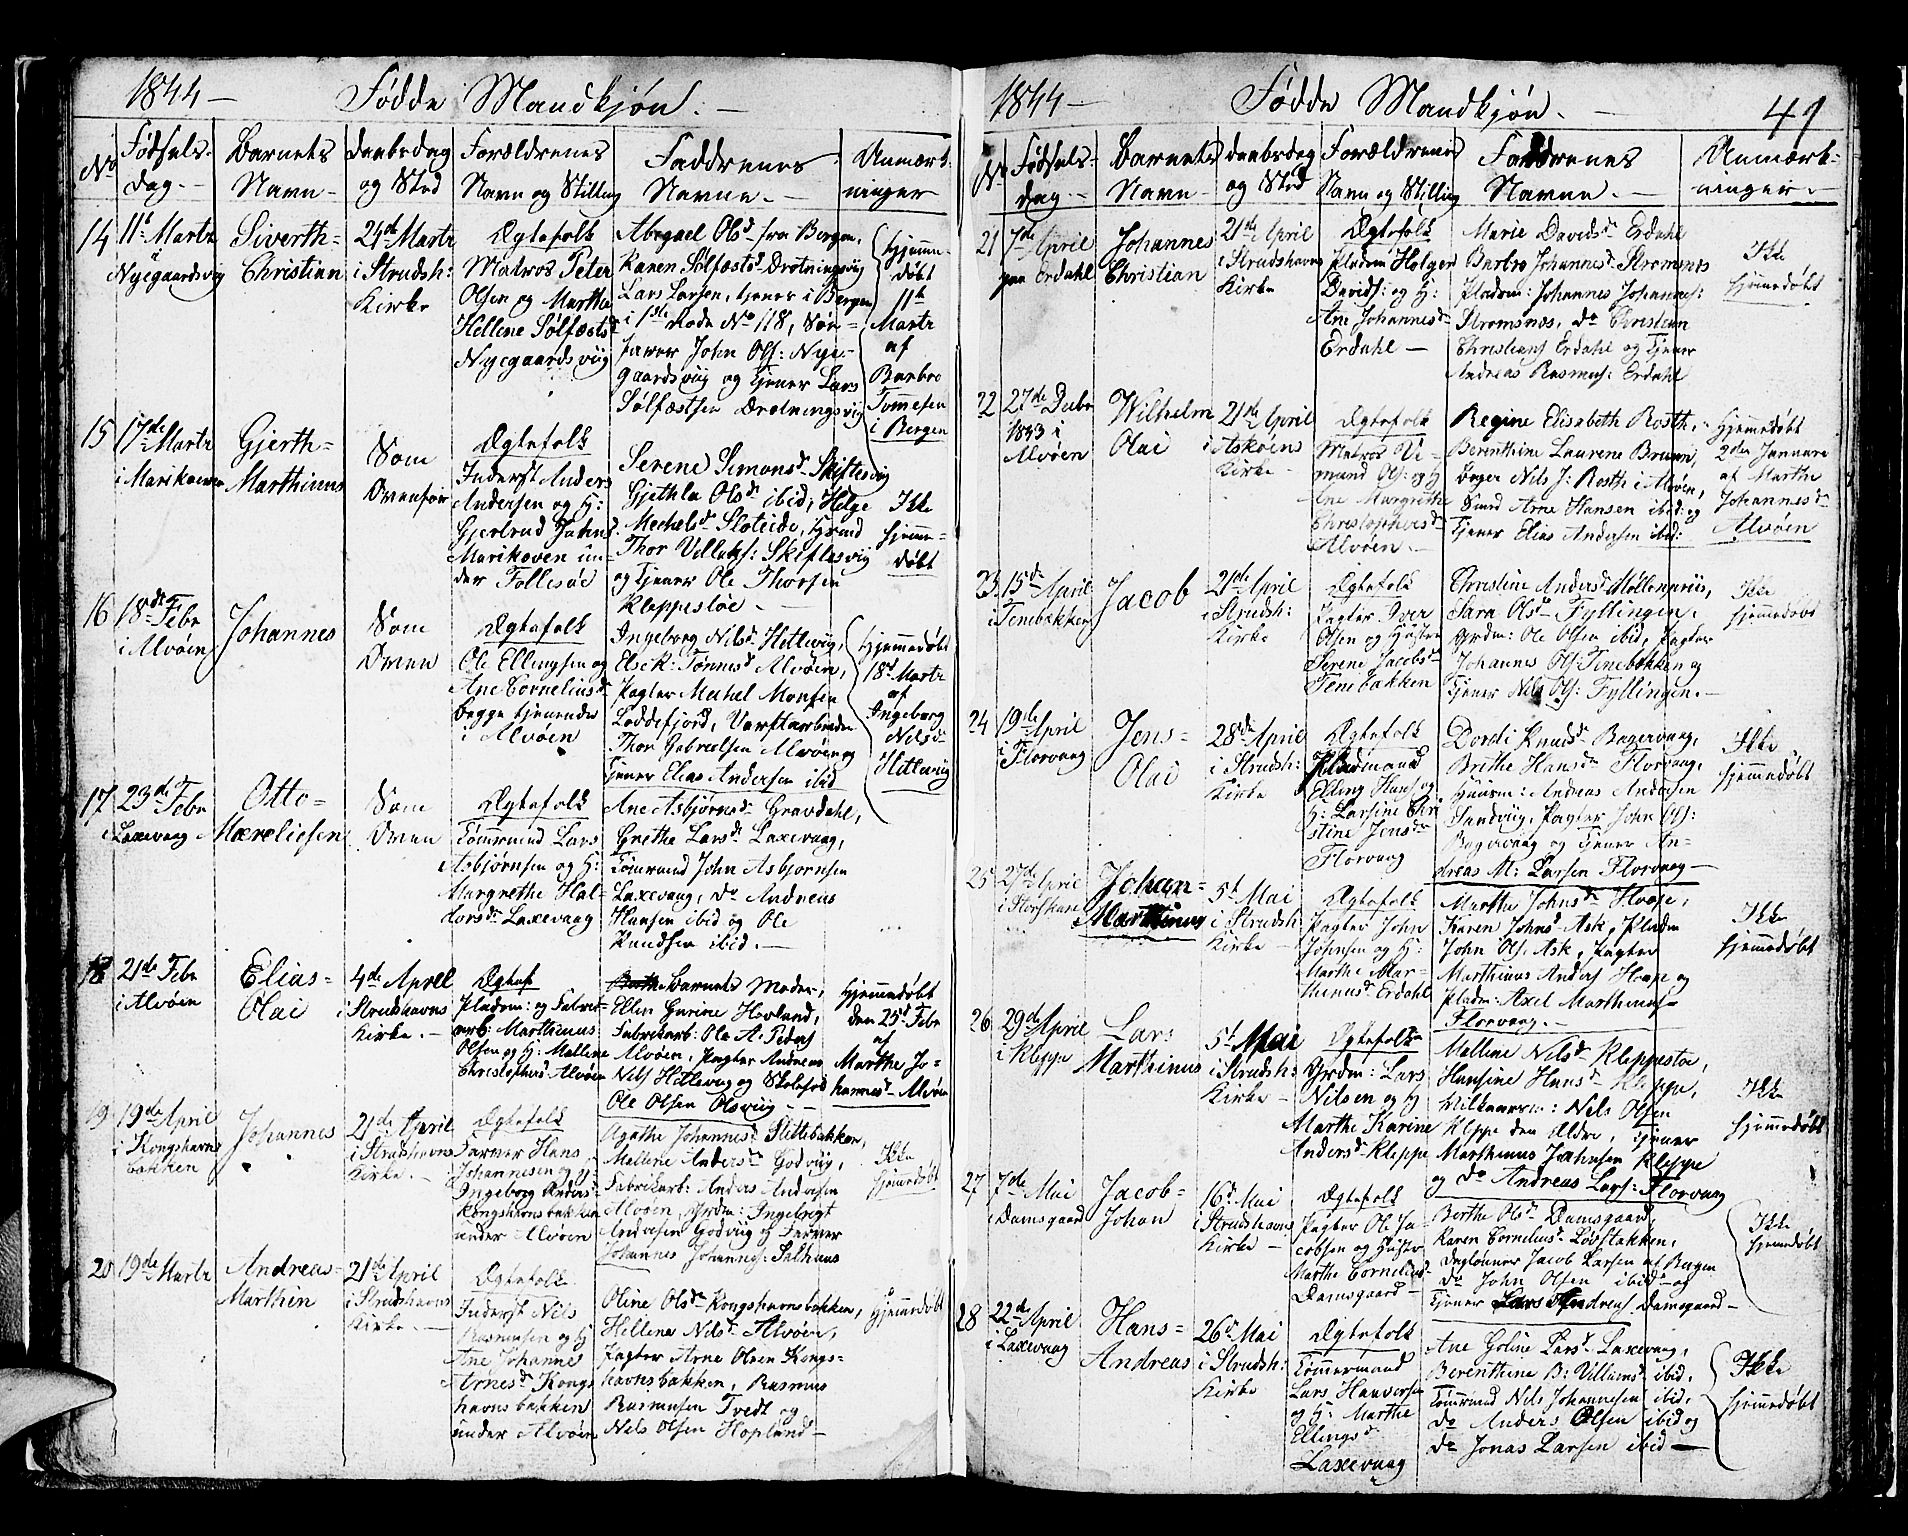 1844 — Fødde Mandkjøn. —
No Fødsels- dag.- Barnets Navn - Daabsdag og Sted Forældrenes Navn og Stilling Faddrenes Navne. - Anmærk- ninger
14 11t Martz i Nyegaardsvig
Siverth- Christian
24de Martz i Strudsh: Kirke
Ægtefolk
Matros Peter
Olsen og Marthe
Hellene Sølfæstsd
Nyegaardsviig
Abegael Olsd fra Bergen,
Karen Sølfæstsd Drotningsvig
Lars Larsen, tjener i Bergen
i 1ste Rode No 118, Søn-
farer John Ols: Nye-
gaardsviig og Tjener Lars
Sølfæstsen Drotningsvig
Hjemme-
døbt
11te
Martz
af
Barbro
Tommesen
i Bergen
15 17de Martz i Marikoven
Gjerth- Marthinus
Som Ovenfor
Ægtefolk
Inderst Anders
Andersen og H:
Gjertrud Johns
Marikoven un-
der Follesøe
Serene Simonsd Skiftesvig
Gjethle Olsd ibid, Helge
Mechelsd Sloteide, Grmd
Thor Villuks: Skiftesvig
og Tjener Ole Thorsen
Kleppesløe -
Ikke
Hjemme-
døbt
16 18de Febr i Alvøen
Johannes
Som Oven
Ægtefolk
Ole Ellingsen og
Ane Corneliusd
begge tjenende
i Alvøen
Ingeborg Nilsd Hetlevig,
Elsek: Tønnesd Alvøen,
Pagter Mechel Monsen
Loddefjord, Værftarbeider
Thor Gabrielsen Alvøen og
Tjener Elias Andersen ibid
Hjemmedøbt
18de Martz
af
Ingeborg
Nilsd
Hetlevig
17 23de Febr Laxevaag
Otto- Mæreliesen
Som Oven
Ægtefolk
Tømrmd Lars
Asbjørnsen og H:
Margrethe Hal-
vorsd Laxevaag
Ane Asbjørnsd Gravdahl,
Grethe Larsd Laxevaag,
Tømrmd John Asbjørnsen
Laxevaag, do Andreas
Hansen ibid og Ole
Knudsen ibid. -
18 21de Febr i Alvøen
Elias- Olai
4de April i Strudshavns Kirke. -
Ægtef
Pladsm: og Fabrik-
arb: Marthinus
Olsen og H: Mallene
Christophersd Alvøen
Barnets Moder,
Ellen Gurine Hovland,
Fabrikarb: Ole A: Peders
Alvøen, Pagter Andreas
Nils Hetlevig og Skolefod
Ole Olsen Olsviig -
Hjemmedøbt
den 25d Febr
af
Marthe Jo-
hannesd Alvøen
19 19de April i Kongshavns bakken
Johannes
21de April i Strudshavns Kirke. -
Ægtefolk
Farver Hans
Johannesen og H:
Ingeborg Andersd
Kongshavnsbakken
under Alvøen
Agathe Johannesd Slettebakken,
Mallene Andersd Godviig,
Fabrikarb: Anders Andersen
Alvøen, Grdm: Ingebrigt
Andersen Godviig og Farver
Johannes Johannes: Salhuus
Ikke
Hjemedøbt
20 19de Martz
Andreas- Marthin
21de April i Strudshavns Kirke. -
Ægtefolk
Inderst Nils
Rasmusen og H
Ane Johanne
Arnesd Kongs
havns bakken
under Alvøen
Oline Olsd Kongshavnsbakken,
Hellene Nilsd Alvøen,
Pagter Arne Olsen Kongs-
havnsbakken, Rasmus
Rasmusen Tvedt og
Nils Olsen Hopland -
Hjemedøbt
1844 — Fødde Mandkjøn. — 49
No Fødsels- dag. - Barnets Navn - Daabsdag og Sted Forældrenes Navn og Stilling Faddrenes Navne. - Anmærk- ninger. -
21 7de April paa Erdahl
Johannes Christian
21de April i Strudshavns Kirke
Ægtefolk
Pladsm Holger
Davids: og H:
Ane Johannesd
Erdahl -
Marie Davidsd Erdahl
Barbro Johannesd Strømsnes
Pladsm: Johannes Johannes:
Strømsnes, do Christian
Christians Erdahl og Tjener
Andreas Rasmus: Erdahl
Ikke
hjemedøbt
22 27de Debr 1843 i Alvøen
Wilhelm Olai
21de April i Askøens Kirke -
Ægtefolk
Matros Vi-
mund Ols: og H
Ane Margrethe
Christophersd
Alvøen. -
Regine Elisabeth Rosth,
Berenthine Laurene Bruun,
Bager Nils J: Rosth i Alvøen,
Smed Arne Hansen ibid: og
Tjener Elias Andersen ibid:
Hjemmedøbt
2de Januarii
af Marthe
Johannesd
Alvøen
23 15de April i Tenebakken
Jacob
21de April i Strudsh: Kirke
Ægtefolk
Pagter Iver
Olsen og Hustru
Serene Jacobsd
Tenebakken
Christine Andersd Møllenpriis,
Sara Olsd Fyllingen,
Grdm: Ole Olsen ibid, Pagter
Johannes Ols: Tenebakken og
Tjener Nils Ols: Fyllingen. -
Ikke
hjemedøbt
24 19de April i Florvaag
Jens- Olai
28de April i Strudsh: Kirke
Ægtefolk
Pladsmand
Elling Hans: og
H: Larsine Chri
stine Jensd
Florvaag
Dordi Knudsd Bagervaag,
Brithe Hansd Florvaag,
Huusm: Andreas Andersen
Sandviig, Pagter John Ols:
Bagervaag og Tjener An-
dreas M: Larsen Florvaag -
Ikke
hjemedøbt
25 27de April i Storskare
Johan- Marthinus
5t Mai i Strudsh: Kirke -
Ægtefolk
Pagter John
Johnsen og H:
Marthe Mar-
thinusd Erdahl
Marthe Johnsd Hope,
Karen Johnsd Ask, Pladsm
John Ols. Ask, Pagter
Marthinus Anders Hope og
Pladsm: Axel Marthinus
Florvaag. -
Ikke
hjemmedøbt
26 29de April i Kleppe
Lars Marthinus
5t Mai i Strudsh: Kirke -
Ægtefolk
Grdm: Lars
Nilsen og H
Marthe Karine
Andersd Kleppe
Mallene Nilsd Kleppestø,
Hansine Hansd Kleppe,
Vilkaarsm: Nils Olsen
Kleppe den Ældre, Tjener
Marthinus Johnsen Kleppe
og do Andreas Lars: Florvaag
Ikke
hjemmedøbt
27 7de Mai i Damsgaard
Jacob- Johan
16t Mai i Strudshavns Kirke -
Ægtefolk
Pagter Ole Ja-
cobsen og Hustr
Marthe Cornelius-
Damsgaard -
Berthe Olsd Damsgaard,
Karen Corneliusd Løbstakken,
Daglønner Jacob Larsen af Bergen
do John Olsen ibid og
Tjener Lars Andreas Damsgaard -
Ikke
hjemedøbt
28 22de April i Laxevaag
Hans- Andreas
26t Mai i Strudsh: Kirke
Ægtefolk
Tømmermand
Lars Hansersen
og H: Marthe
Ellingsd
Laxevaag
Ane Goline Larsd Laxevaag,
Berenthine B: Villumsd ibid,
Tømrmd Nils Johannesen ibid,
do Anders Olsen ibid og
do Jonas Larsen ibid —
Ikke
hjemedøbt